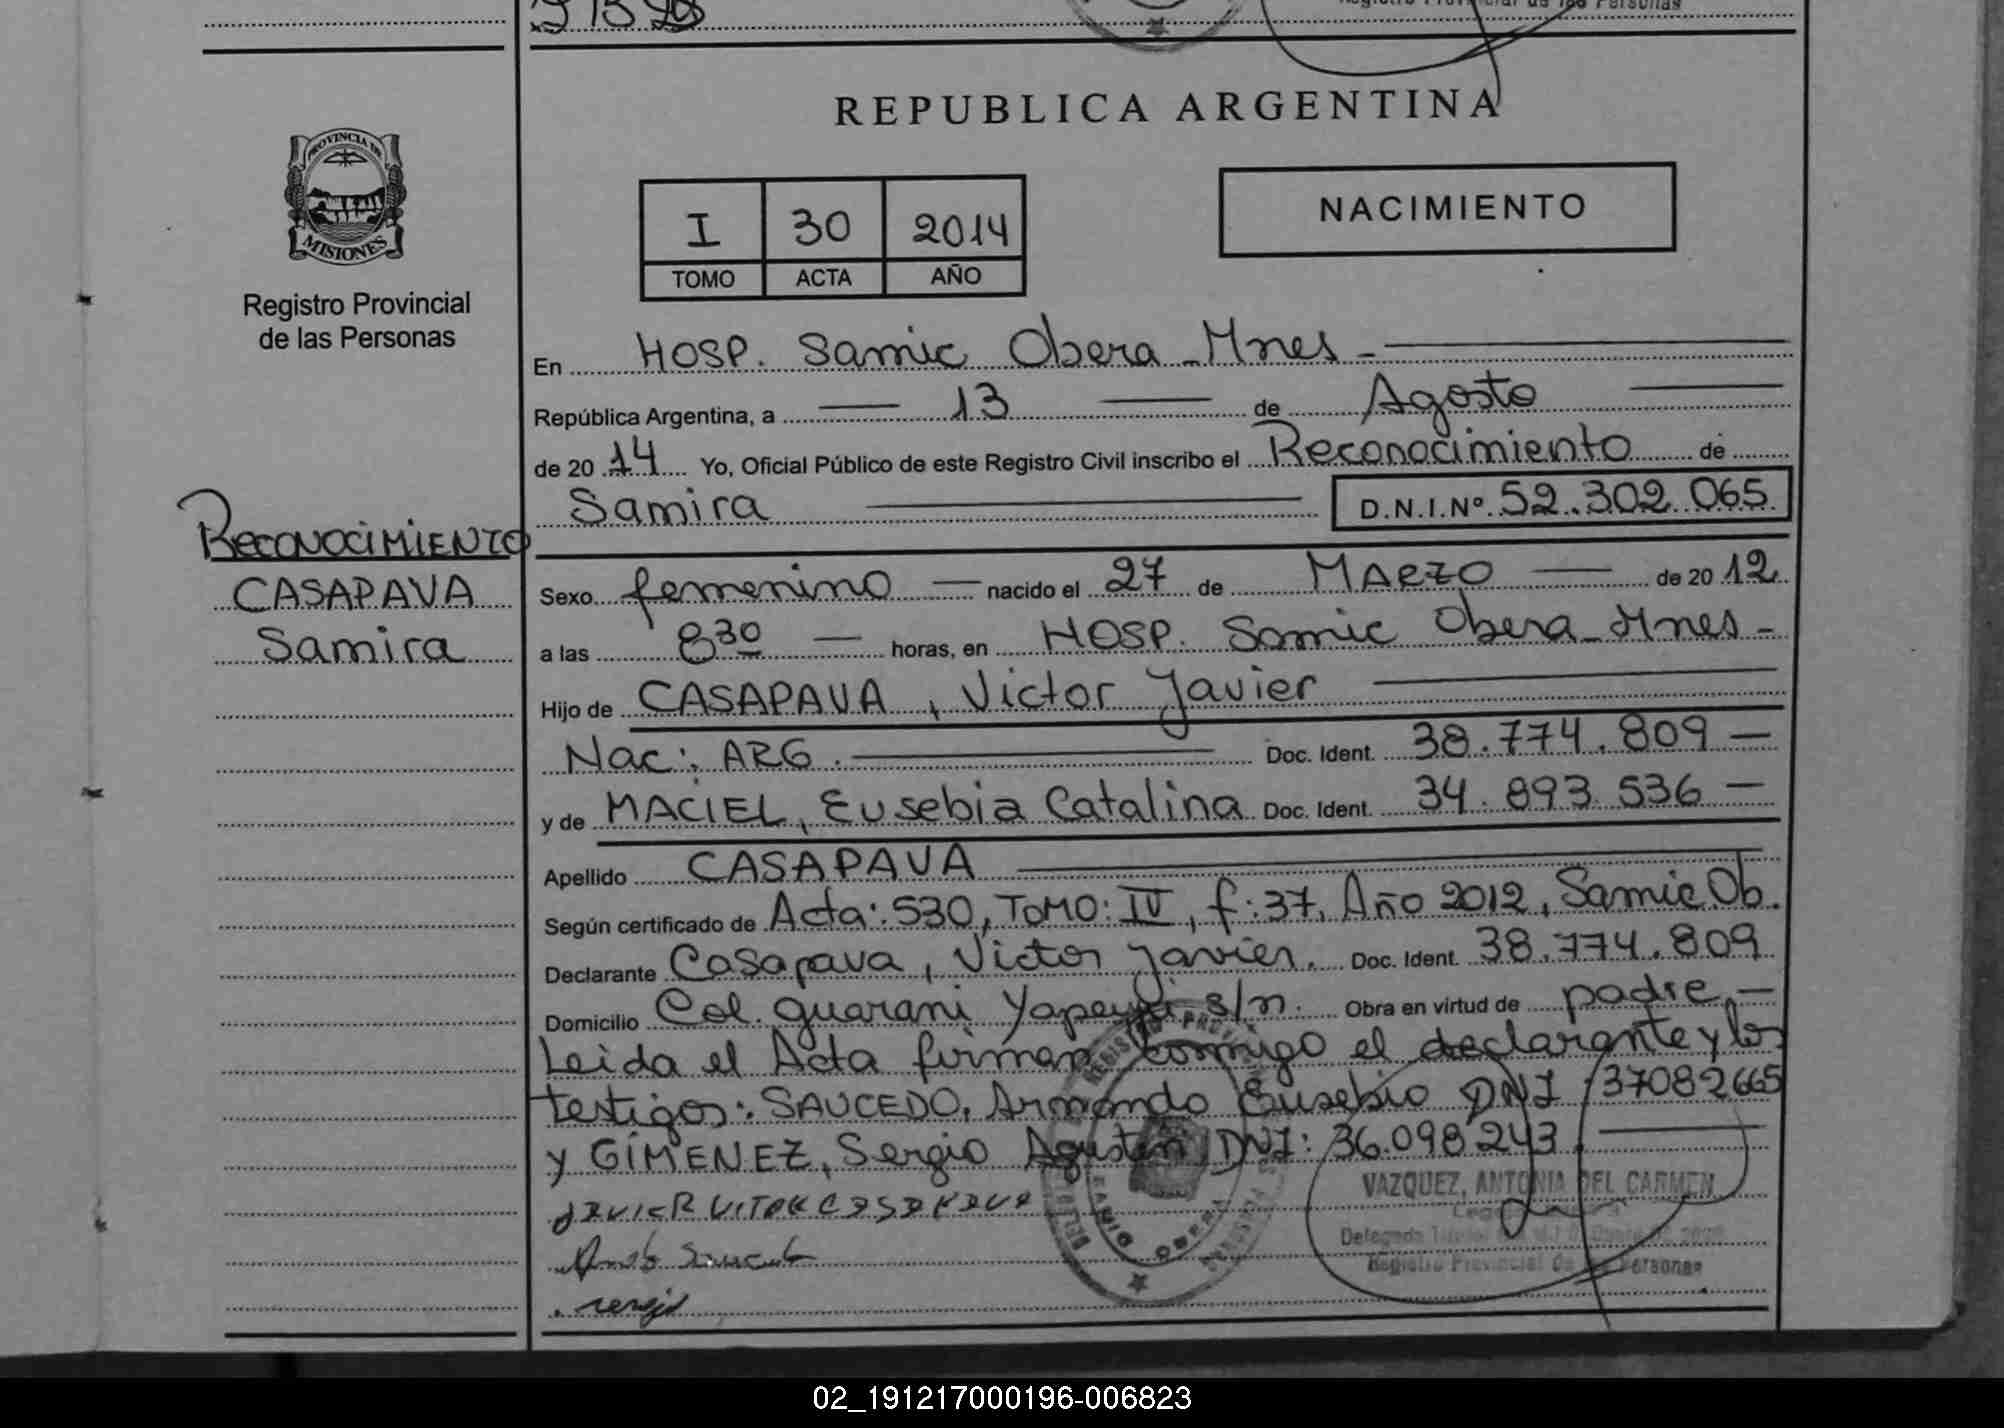 REPUBLICA ARGENTINA
PROVINCIA DE
MISIONES
Registro Provincial
de las Personas
I 30 2014
TOMO ACTA AÑO
NACIMIENTO
En HOSP. Samic Obera - Mnes -
República Argentina, a 13 de Agosto
de 20 14 Yo, Oficial Público de este Registro Civil inscribo el Reconocimiento de
Samira D.N.I.Nº 52.302.065
RECONOCIMIENTO
CASAPAVA
Samira
Sexo femenino nacido el 27 de MARZO de 20 12
a las 8 30 horas, en HOSP. Samic Obera - Mnes -
Hijo de CASAPAVA, Victor Javier
Nac: ARG. Doc. Ident. 38.774.809
y de MACIEL, Eusebia Catalina Doc. Ident. 34.893.536
Apellido CASAPAVA
Según certificado de Acta: 530, TOMO: IV, f: 37, Año 2012, Samic Ob.
Declarante Casapava, Victor Javier. Doc. Ident. 38.774.809
Domicilio Col. guarani Yapeyu s/n. Obra en virtud de padre, -
Leida el Acta firman conmigo el declarante y los
testigos: SAUCEDO, Armando Eusebio DNI 37082665
y GIMENEZ, Sergio Agustin DNI: 36.098.243
VAZQUEZ, ANTONIA DEL CARMEN
JAVIER VITOR CASAPAVA
Registro Provincial de las Personas
02_191217000196-006823